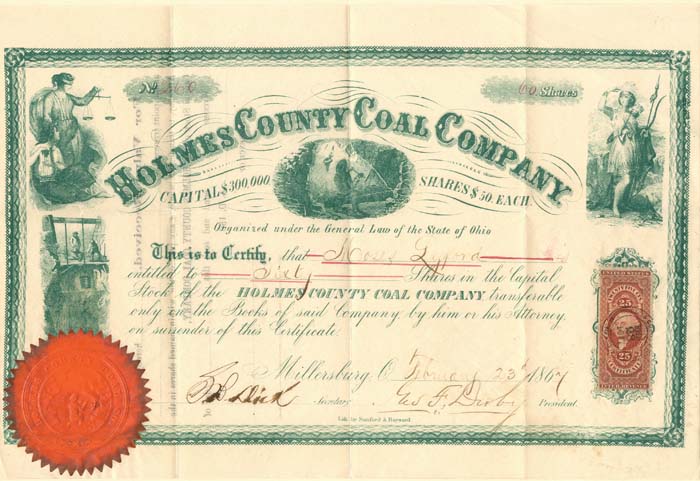 No 60 Shares
HOLMES COUNTY COAL COMPANY
CAPITAL $300,000 SHARES $50. EACH.
Organized under the General Law of the State of Ohio
This is to Certify, that Moses is
entitled Sixty Shares in the Capital
Stock of the HOLMES COUNTY COAL COMPANY, transferable
only on the Books of said Company by him or his Attorney
on surrender of this Certificate
Millersburg, O. February 23d 1867
Secretary Geo F. President.
Lith. by Sanford & Hayward
UNITED STATES
25 25
INTER. REVENUE